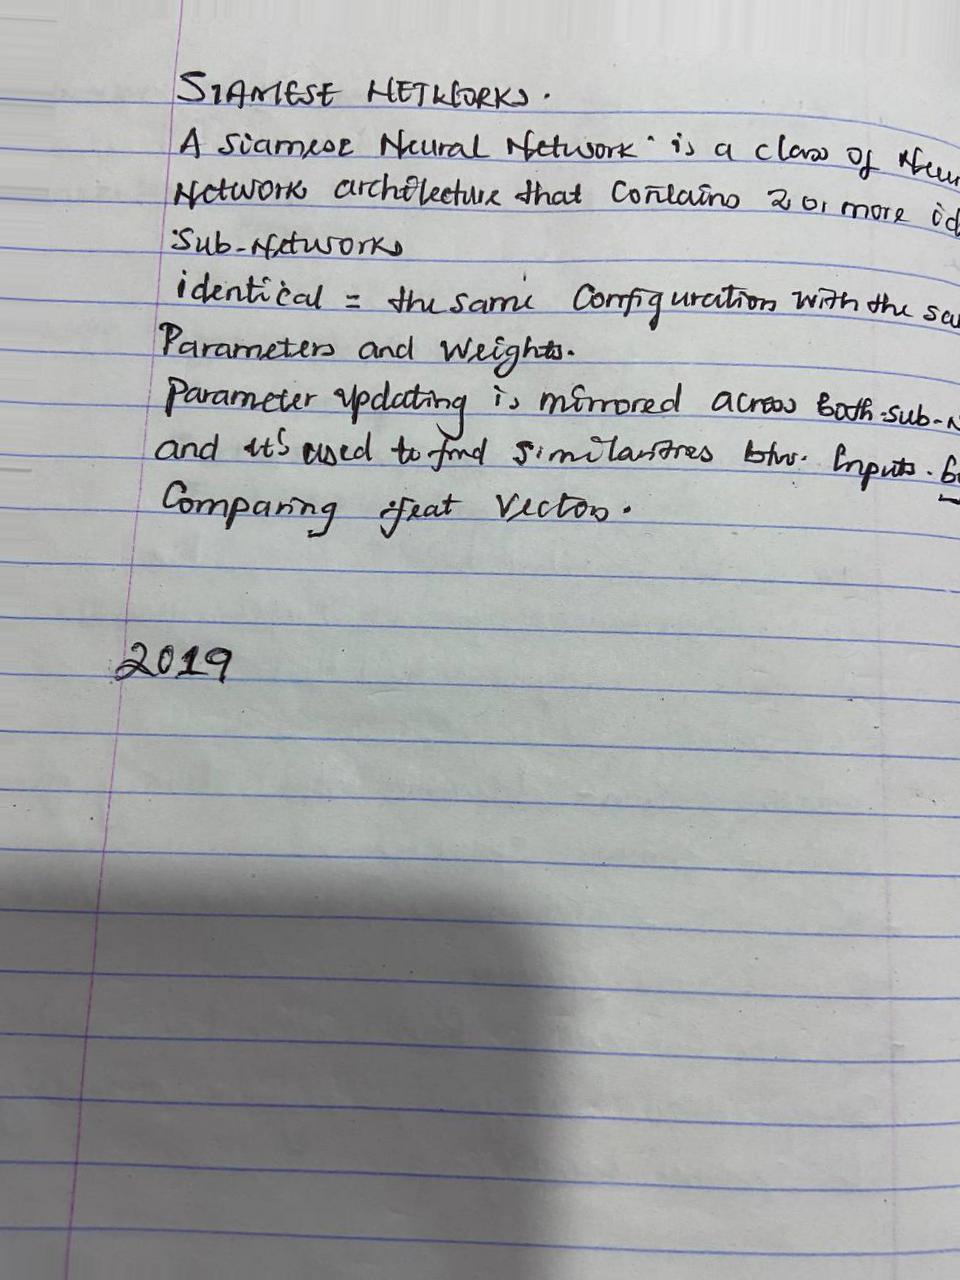 SIAMESE NETWORKS.
A Siamese Neural Network is a class of Neur
Network architecture that contains 2 or more id
Sub-Networks
identical = the same Configuration with the sa
Parameters and Weights.
Parameter updating is mirrored across both sub-N
and it's used to find similarities btw. Inputs. b
Comparing feat Vectors.
2019